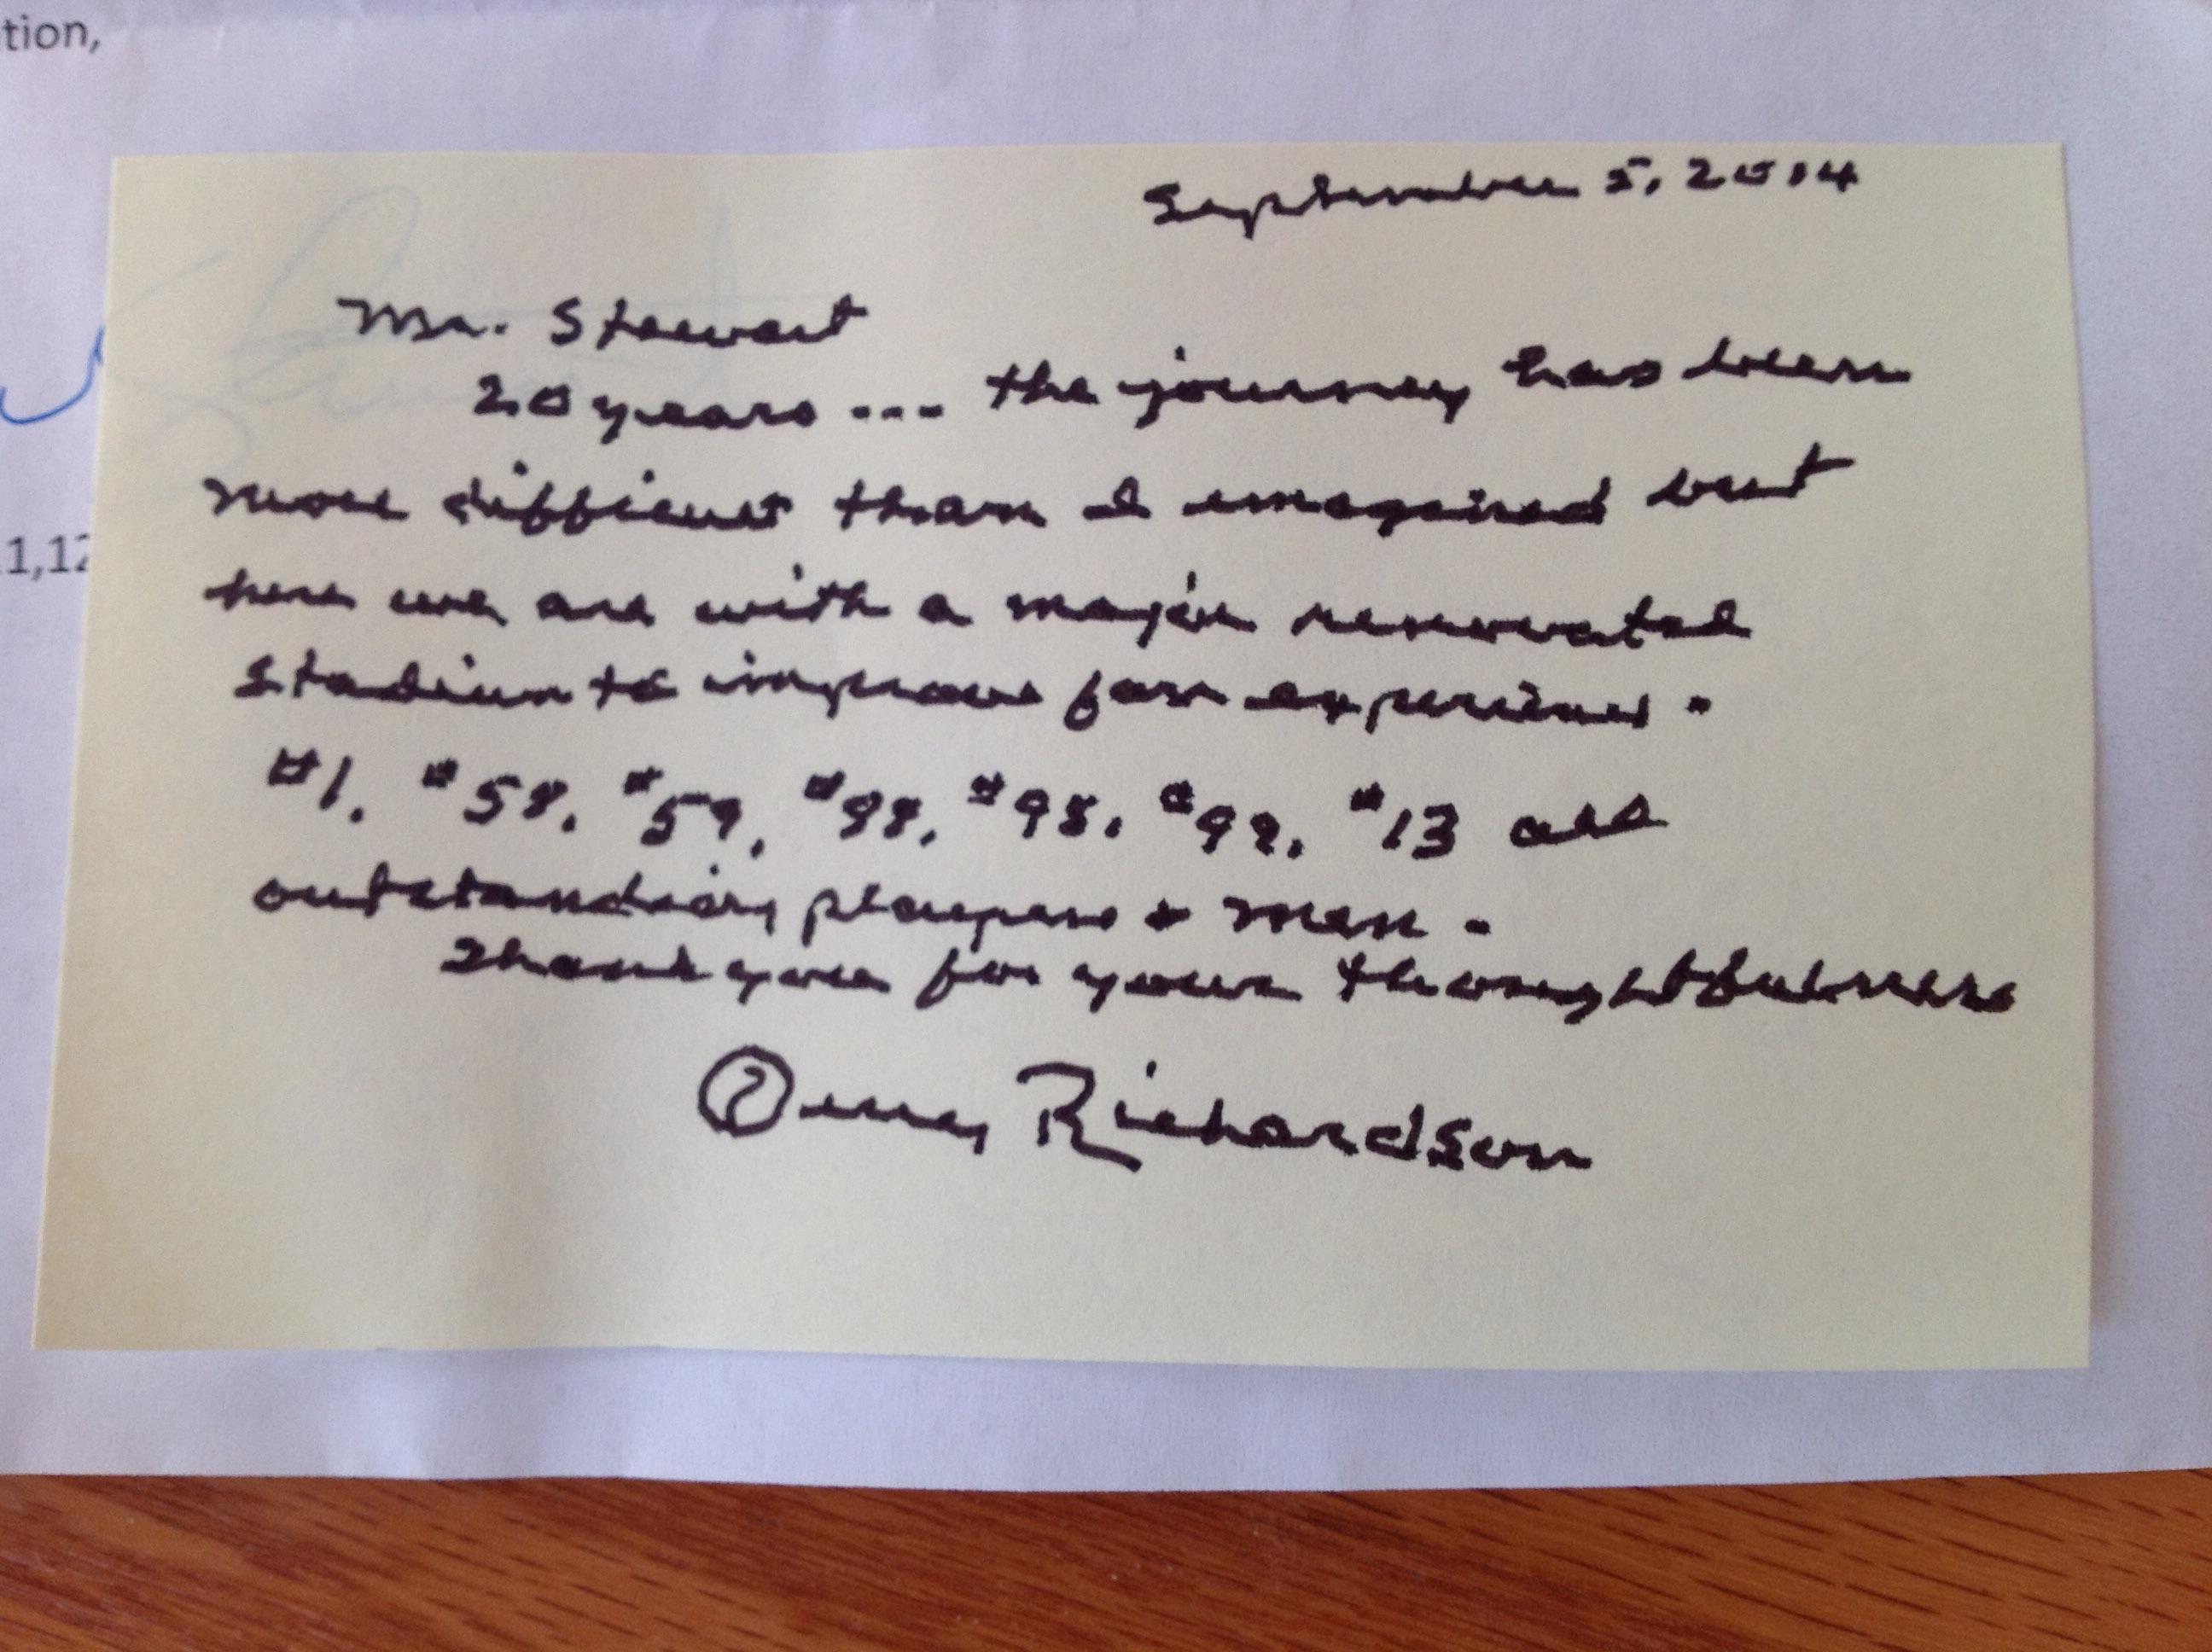 tion,
September 5, 2014
Mr. Stewart
20 years... the journey has been
more difficult than I imagined but
here we are with a major renovated
stadium to improve fan experience.
#1, #58, #59, #88, #95, #92, #13 all
outstanding players + men.
Thank you for your thoughtfulness
Richardson
1,12